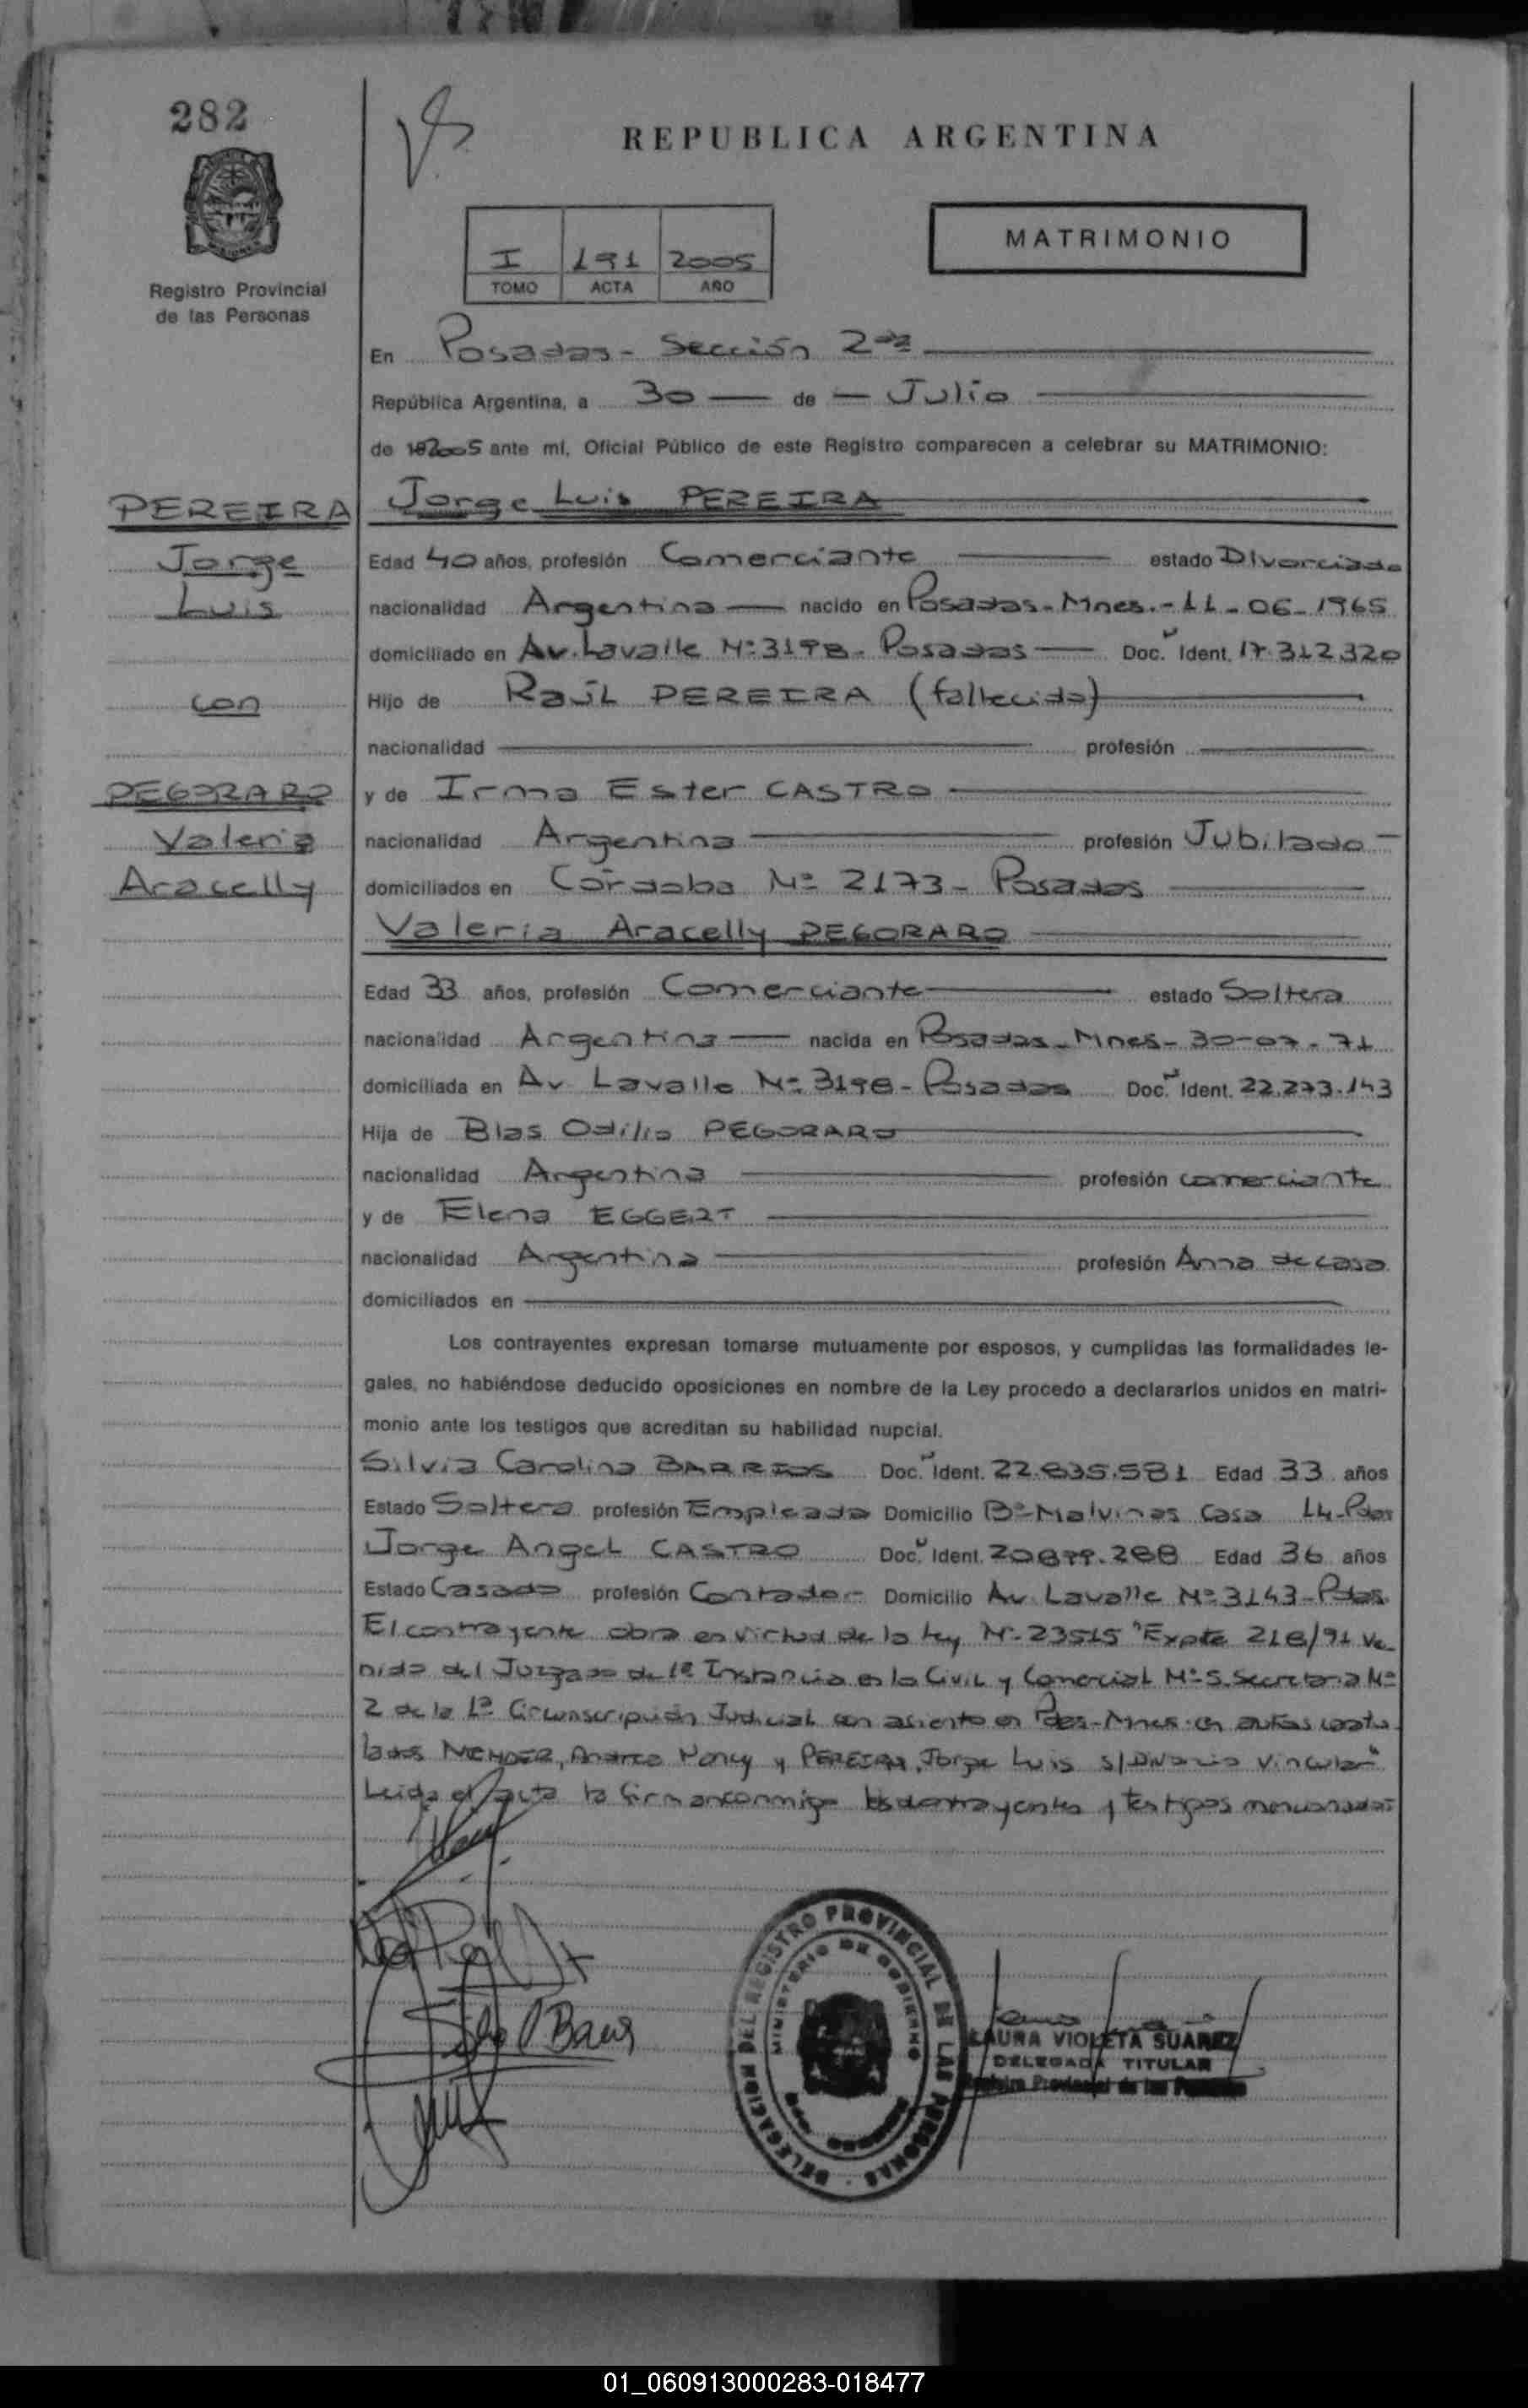 282
REPUBLICA ARGENTINA
MATRIMONIO
I 191 2005
TOMO ACTA AÑO
Registro Provincial
de las Personas
En Posadas - Sección 2da
República Argentina, a 30 de Julio
de 2005 ante mí, Oficial Público de este Registro comparecen a celebrar su MATRIMONIO:
PEREIRA
Jorge
Luis
con
PEGORARO
Valeria
Aracelly
Jorge Luis PEREIRA
Edad 40 años, profesión Comerciante estado Divorciado
nacionalidad Argentina nacido en Posadas - Mnes. - 11-06-1965
domiciliado en Av. Lavalle Nº 3198 - Posadas Doc. Ident. 17.312.320
Hijo de Raúl PEREIRA (fallecido)
nacionalidad profesión
y de Irma Ester CASTRO
nacionalidad Argentina profesión Jubilado
domiciliados en Córdoba Nº 2173 - Posadas
Valeria Aracelly PEGORARO
Edad 33 años, profesión Comerciante estado Soltera
nacionalidad Argentina nacida en Posadas - Mnes - 30-07-71
domiciliada en Av Lavalle Nº 3198 - Posadas Doc. Ident. 22.273.143
Hija de Blas Odilio PEGORARO
nacionalidad Argentina profesión comerciante
y de Elena EGGERT
nacionalidad Argentina profesión Ama de casa
domiciliados en
Los contrayentes expresan tomarse mutuamente por esposos, y cumplidas las formalidades le-
gales, no habiéndose deducido oposiciones en nombre de la Ley procedo a declararlos unidos en matri-
monio ante los testigos que acreditan su habilidad nupcial.
Silvia Carolina BARRIOS Doc. Ident. 22.835.581 Edad 33 años
Estado Soltera profesión Empleada Domicilio Bº Malvinas Casa 14 - Pdas
Jorge Angel CASTRO Doc. Ident. 20.899.288 Edad 36 años
Estado Casado profesión Contador Domicilio Av. Lavalle Nº 3143 - Pdas.
El contrayente obra en virtud de la Ley Nº 23515 "Expte 218/91 Ve-
nido del Juzgado de 1ª Instancia en lo Civil y Comercial Nº 5. Secretaria Nº
2 de la 1ª Circunscripción Judicial con asiento en Pdas - Mnes. en autos caratu-
lados Andrea Nancy y PEREIRA, Jorge Luis s/Divorcio Vincular"
Leida el acta la firman conmigo los contrayentes y testigos mencionados
DELEGACION DEL REGISTRO PROVINCIAL DE LAS PERSONAS
MINISTERIO DE GOBIERNO
LAURA VIOLETA SUAREZ
DELEGADA TITULAR
Registro Provincial de las Personas
01_060913000283-018477